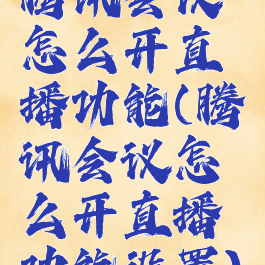 腾讯会议
怎么开直
播功能(腾
讯会议怎
么开直播
功能设置)